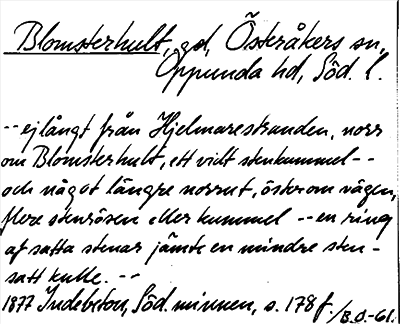 Blomsterhult, gd, Österåkers sn,
Oppunda hd, Söd. l.
-- ej långt från Hjelmarestranden, norr
om Blomsterhult, ett vildt stenkummel --
och något längre norrut, öster om vägen,
flere stenrösen eller kummel -- en ring
af satta stenar jämte en mindre sten-
satt kulle. --
1877 Indebetou, Söd. minnen, s. 178 f. /B.O.-61.